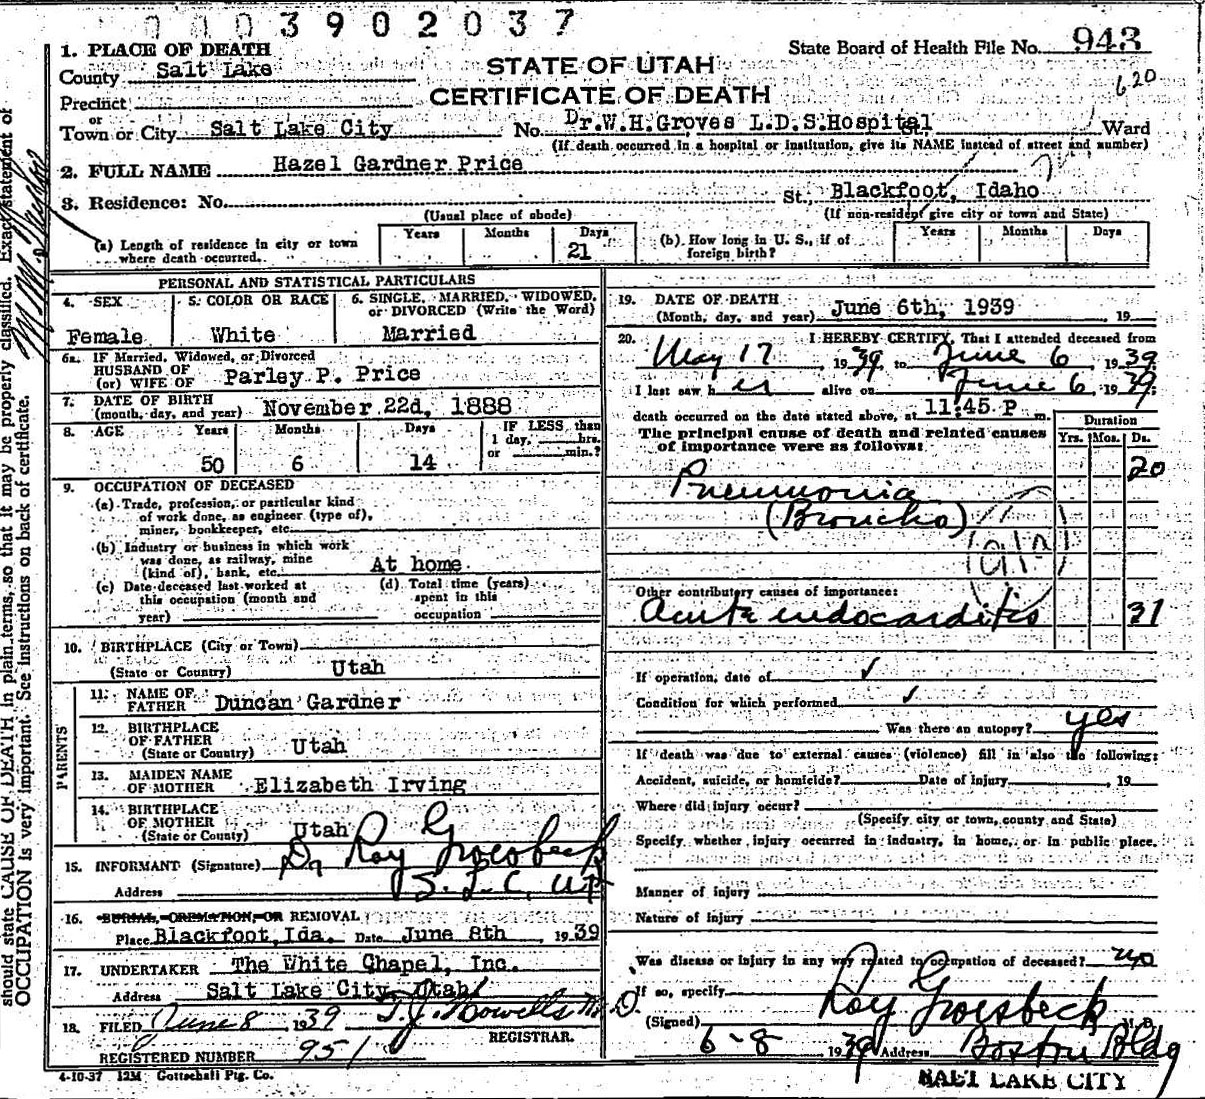 0003902037
1. PLACE OF DEATH
State Board of Health File No. 943
County Salt Lake
STATE OF UTAH
620
Precinct
CERTIFICATE OF DEATH
or
Town or City Salt Lake City No. Dr.W.H.Groves L.D.S.Hospital St., Ward
(If death occurred in a hospital or institution, give its NAME instead of street and number)
2. FULL NAME Hazel Gardner Price
3. Residence: No. St., Blackfoot, Idaho
(Usual place of abode) (If non-resident give city or town and State)
(a) Length of residence in city or town where death occurred. Years Months Days 21
(b) How long in U. S., if of foreign birth? Years Months Days
PERSONAL AND STATISTICAL PARTICULARS
4. SEX 5. COLOR OR RACE 6. SINGLE, MARRIED, WIDOWED, or DIVORCED (Write the Word)
Female White Married
6a. IF Married, Widowed, or Divorced
HUSBAND OF
(or) WIFE OF Parley P. Price
7. DATE OF BIRTH
(month, day, and year) November 22d, 1888
8. AGE Years Months Days IF LESS than
1 day, hrs.
or min.?
50 6 14
9. OCCUPATION OF DECEASED
(a) Trade, profession, or particular kind
of work done, as engineer (type of),
miner, bookkeeper, etc.
(b) Industry or business in which work
was done, as railway, mine
(kind of), bank, etc. At home
(c) Date deceased last worked at
this occupation (month and
year)
(d) Total time (years)
spent in this
occupation
10. BIRTHPLACE (City or Town)
(State or Country) Utah
PARENTS
11. NAME OF
FATHER Duncan Gardner
12. BIRTHPLACE
OF FATHER
(State or Country) Utah
13. MAIDEN NAME
OF MOTHER Elizabeth Irving
14. BIRTHPLACE
OF MOTHER
(State or Country) Utah
15. INFORMANT (Signature) Dr Roy Groesbeck
Address S. L. C. Ut
16. BURIAL, CREMATION, OR REMOVAL
Place Blackfoot, Ida. Date June 8th, 1939
17. UNDERTAKER The White Chapel, Inc.
Address Salt Lake City, Utah
18. FILED June 8 1939 T.J. Howells M.D.
REGISTRAR.
REGISTERED NUMBER 951
4-10-37 12M Gottschall Ptg. Co.
19. DATE OF DEATH
(Month, day, and year) June 6th, 1939, 19
20. I HEREBY CERTIFY, That I attended deceased from
May 17, 1939, to June 6, 1939.
I last saw her alive on June 6, 1939.
death occurred on the date stated above, at 11:45 P m.
The principal cause of death and related causes
of importance were as follows:
Duration
Yrs. Mos. Ds.
20
Pneumonia
(Broncho)
Other contributory causes of importance:
Acute endocarditis 31
If operation, date of ✓
Condition for which performed ✓
Was there an autopsy? yes
If death was due to external causes (violence) fill in also the following:
Accident, suicide, or homicide? Date of injury, 19
Where did injury occur?
(Specify city or town, county and State)
Specify whether injury occurred in industry, in home, or in public place.
Manner of injury
Nature of injury
Was disease or injury in any way related to occupation of deceased? no
If so, specify
(Signed) Roy Groesbeck M. D.
6-8 1939 Address Boston Bldg
SALT LAKE CITY
should state CAUSE OF DEATH in plain terms, so that it may be properly classified. Exact statement of
OCCUPATION is very important. See instructions on back of certificate.